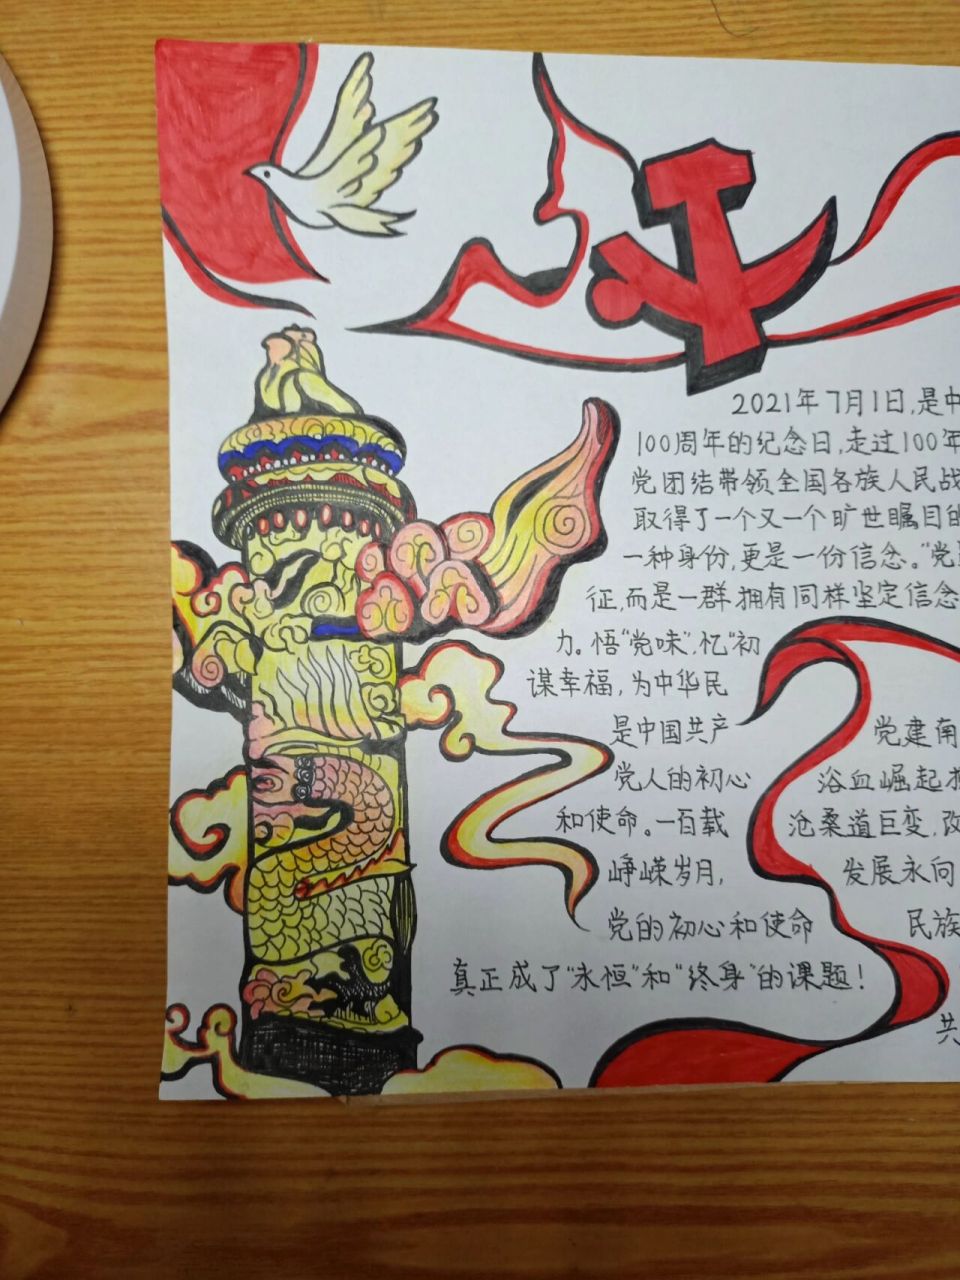 2021年7月1日,是中
100周年的纪念日,走过100年
党团结带领全国各族人民战
取得了一个又一个旷世瞩目的
一种身份,更是一份信念。"党
征,而是一群拥有同样坚定信念
力。悟"党味",忆"初
谋幸福,为中华民
是中国共产
党人的初心
和使命。一百载
峥嵘岁月,
党的初心和使命
真正成了"永恒"和"终身"的课题!
党建南
浴血崛起
沧桑道巨变,改
发展永向
民族
共